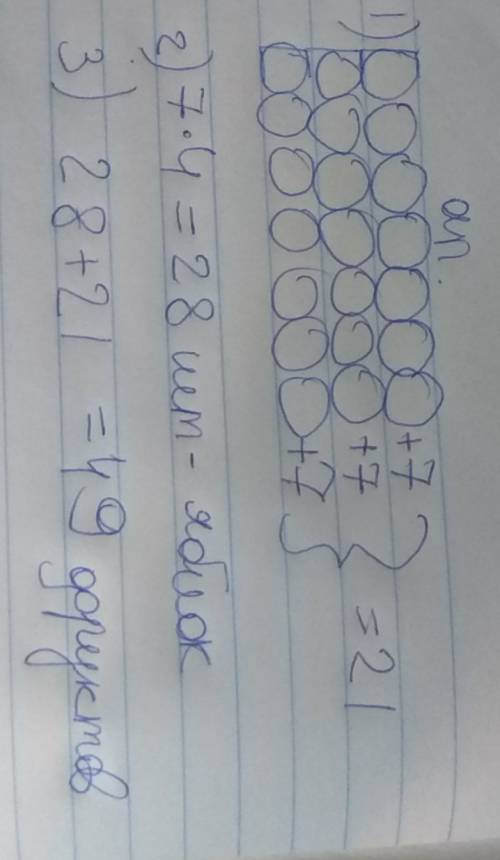 ап.
1) +7
+7 = 21
+7
2) 7·4 = 28 шт - яблок
3) 28+21 = 49 фруктов